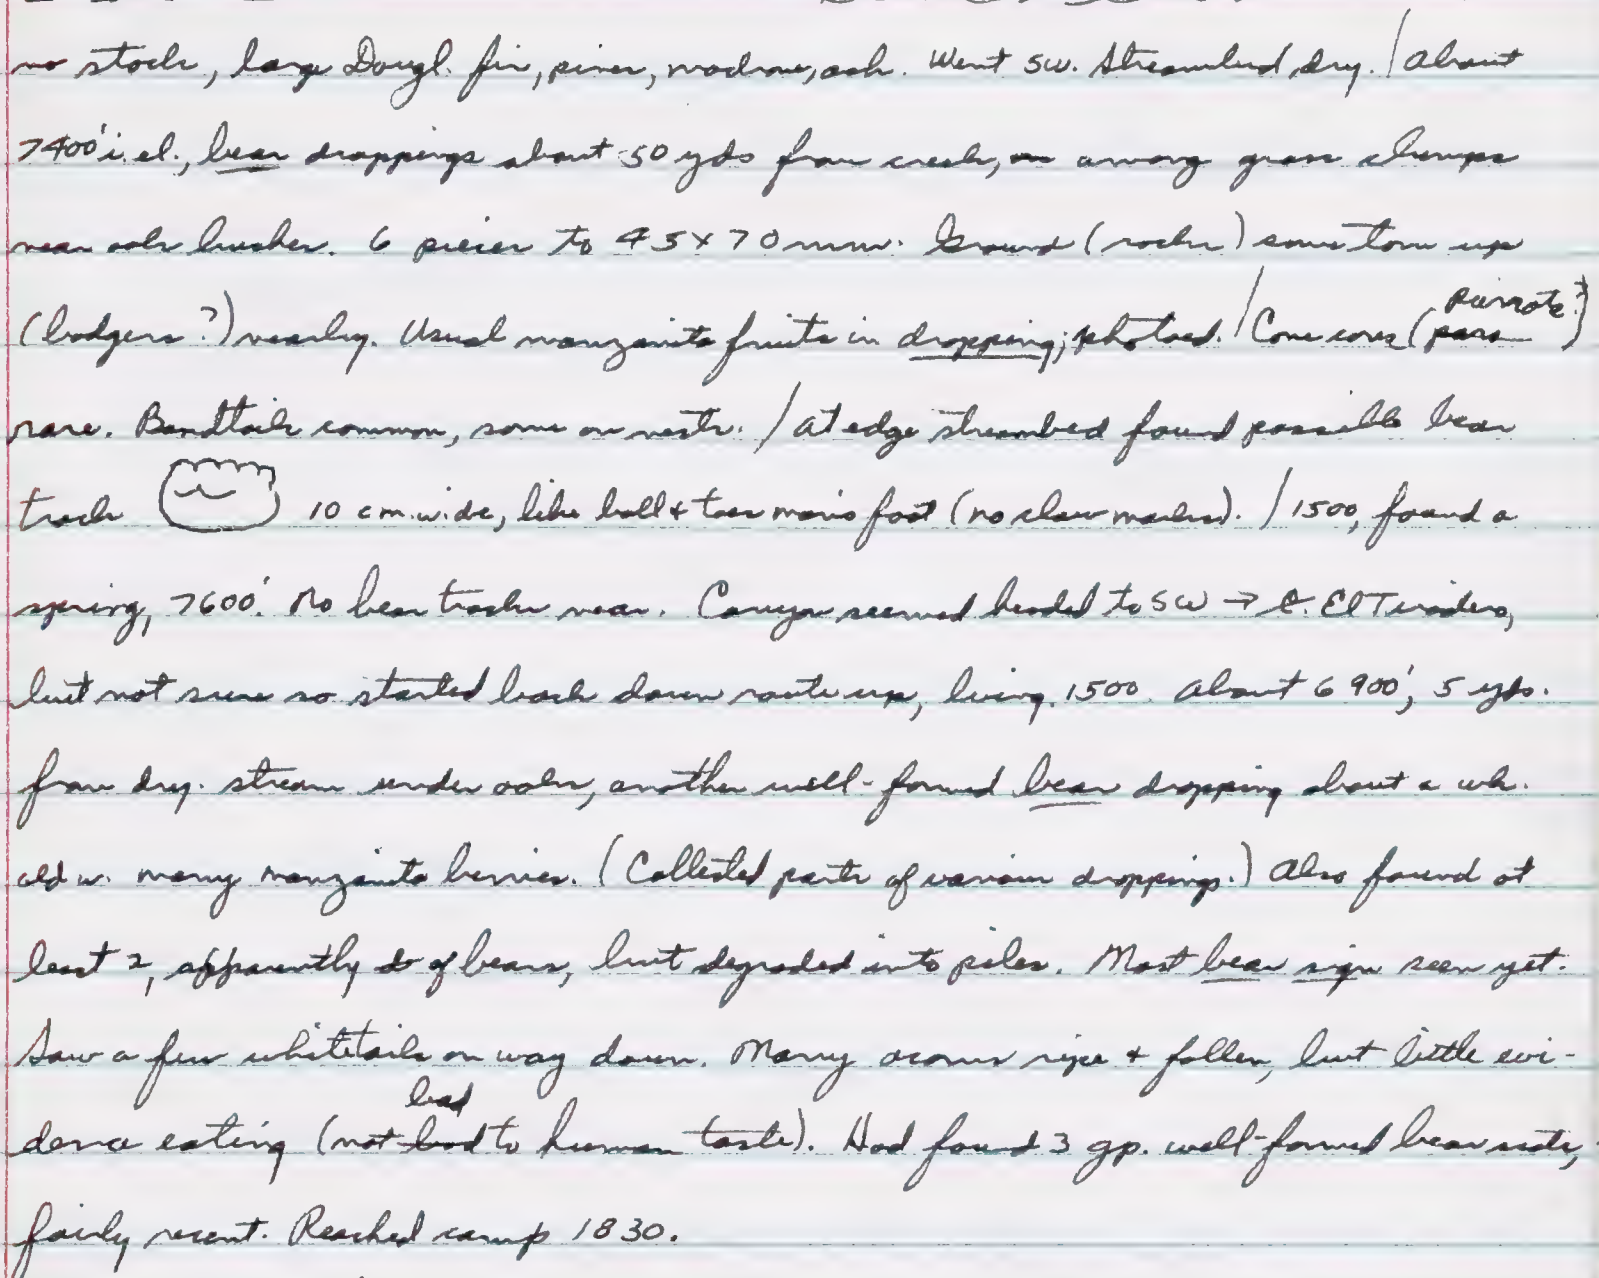 no stock, large Dougl. fir, pines, madrone, oak. Went SW. Streambed dry. / About
7400' i. el., bear droppings about 50 yds from creek, on among grass clumps
near oak bushes. 6 pieces to 45 x 70 mm. Ground (rocks) some torn up
(badgers?) nearby. Usual manzanita fruits in dropping; photoed. / Cone cores (pars parrots?)
rare. Bandtails common, some on nests. / At edge streambed found possible bear
track 10 cm. wide, like ball & toes man's foot (no claw marks). / 1500, found a
spring, 7600'. No bear tracks near. Canyon seemed headed to SW → C. El Tiradero,
but not sure so started back down route up, leaving 1500. About 6900', 5 yds.
from dry stream under oaks, another well-formed bear dropping about a wk.
old w. many manzanita berries. (Collected parts of various droppings.) Also found at
least 2, apparently of bears, but degraded into piles. Most bear sign seen yet.
Saw a few whitetails on way down. Many acorns ripe & fallen, but little evi-
dence eating (not bad bad to human taste). Had found 3 gp. well-formed bear scats,
fairly recent. Reached camp 1830.